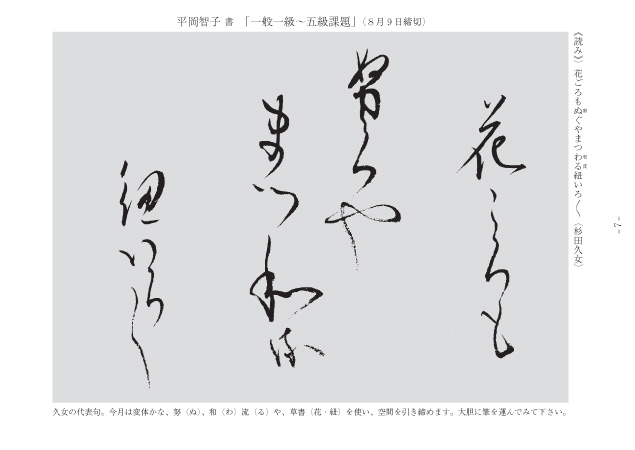 平岡智子 書 「一般一級～五級課題」（８月９日締切）
《読み》花ごろもぬぐやまつわる紐いろ〱（杉田久女）
努
和
流
花ころも
努くや
まつ和流
紐いろ〱
久女の代表句。今月は変体かな、努（ぬ）、和（わ）流（る）や、草書（花・紐）を使い、空間を引き締めます。大胆に筆を運んでみて下さい。
- 7 -